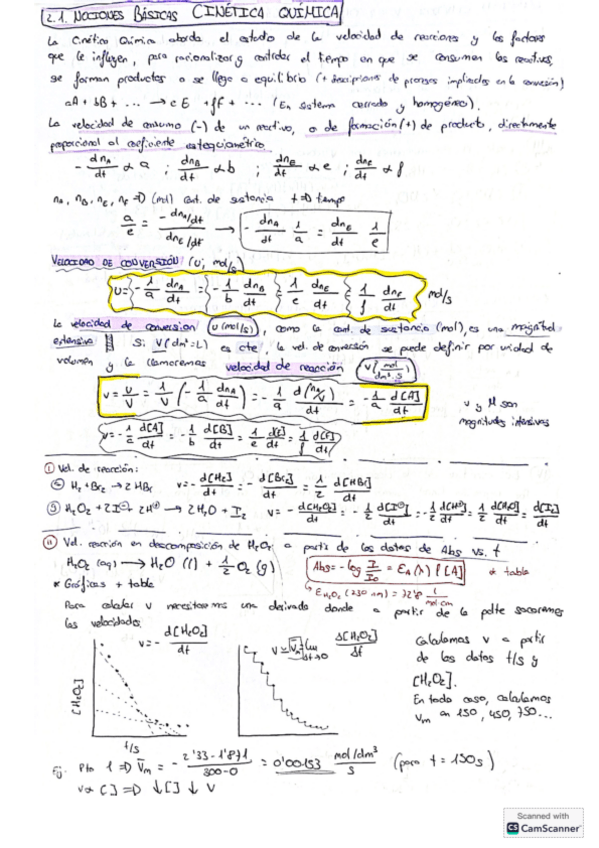 2.1. NOCIONES BÁSICAS CINÉTICA QUÍMICA
La Cinética Química aborda el estudio de la velocidad de reacciones y los factores
que le influyen, para racionalizar y controlar el tiempo en que se consumen los reactivos,
se forman productos o se llega a equilibrio (+ descripciones de procesos implicados en la conversión)
aA + bB + ... → eE + fF + ... (En sistema cerrado y homogéneo).
La velocidad de consumo (-) de un reactivo, o de formación (+) de producto, directamente
proporcional al coeficiente estequiométrico
- dnA/dt ∝ a ; dnB/dt ∝ b ; dnE/dt ∝ e ; dnF/dt ∝ f
nA, nB, nE, nF ⇒ (mol) cant. de sustancia t ⇒ tiempo
a/e = (-dnA/dt)/(dnE/dt) → - dnA/dt 1/a = dnE/dt 1/e
VELOCIDAD DE CONVERSIÓN (U; mol/s)
U = - 1/a dnA/dt = - 1/b dnB/dt = 1/e dnE/dt = 1/f dnF/dt mol/s
La velocidad de conversion U (mol/s), como la cant. de sustancia (mol), es una magnitud
extensiva Si V (dm³=L) es cte, la vel. de conversión se puede definir por unidad de
volumen y la llamaremos velocidad de reacción v (mol/dm³·s)
v = U/V = 1/V (- 1/a dnA/dt) = - 1/a d(nA/V)/dt = - 1/a d[A]/dt
v y M son
magnitudes intensivas
v = - 1/a d[A]/dt = - 1/b d[B]/dt = 1/e d[E]/dt = 1/f d[F]/dt
Vel. de reacción:
H₂ + Br₂ → 2HBr v = - d[H₂]/dt = - d[Br₂]/dt = 1/2 d[HBr]/dt
H₂O₂ + 2I⁻ + 2H⁺ → 2H₂O + I₂ v = - d[H₂O₂]/dt = - 1/2 d[I⁻]/dt = - 1/2 d[H⁺]/dt = 1/2 d[H₂O]/dt = d[I₂]/dt
Vel. reacción en descomposición de H₂O₂ a partir de los datos de Abs vs. t
H₂O₂ (aq) → H₂O (l) + 1/2 O₂ (g) Abs = - log I/I₀ = EA(λ) l [A] * tabla
* Gráficas + tabla
Para calcular v necesitaremos una derivada donde a partir de la pdte sacaremos
las velocidades.
v = - d[H₂O₂]/dt
Δ[H₂O₂]/Δt
Calculamos v a partir
de los datos t/s y
[H₂O₂].
En todo caso, calculamos
vm en 150, 450, 750...
[H₂O₂]
t/s
Ej. Pto 1 ⇒ v̄m = - (2'33 - 1'871)/(300-0) = 0'00153 mol/dm³/s (para t = 150s)
v ∝ [ ] ⇒ ↓[ ] ↓ v
Scanned with
CS CamScanner